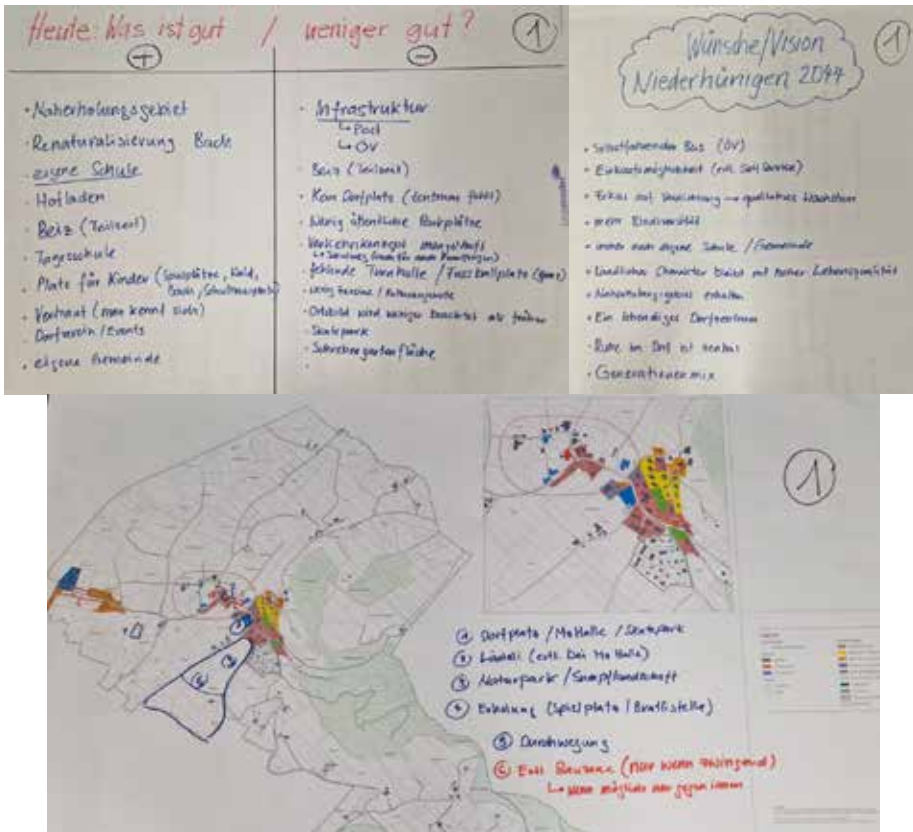 Heute: Was ist gut / weniger gut?
1
+
• Naherholungsgebiet
• Renaturalisierung Bach
• eigene Schule
• Hofladen
• Beiz (Teilzeit)
• Tagesschule
• Platz für Kinder (Spielplätze, Wald,
Bach, Schulhausplatz)
• Vertraut (man kennt sich)
• Dorfverein/Events
• eigene Gemeinde
-
• Infrastruktur
↳ Post
↳ ÖV
• Beiz (Teilzeit)
• Kein Dorfplatz (Zentrum fehlt)
• Wenig öffentliche Parkplätze
• Verkehrskonzept mangelhaft
• fehlende Turnhalle / Fussballplatz (gross)
• wenig Vereine / Kulturangebote
• Ortsbild wird weniger beachtet als früher
• Skatepark
• Schrebergartenfläche
Wünsche/Vision
Niederhünigen 2044
1
• Selbstfahrender Bus (ÖV)
• Einkaufsmöglichkeit (evtl. Self Service)
• Fokus auf Verdichtung → qualitatives Wachstum
• mehr Biodiversität
• immer noch eigene Schule / Gemeinde
• Ländlicher Charakter bleibt mit hoher Lebensqualität
• Naherholungsgebiet erhalten
• Ein lebendiges Dorfzentrum
• Ruhe im Dorf ist zentral
• Generationenmix
1
① Dorfplatz / MzHalle / Skatepark
② Lädeli (evtl. bei MzHalle)
③ Naturpark / Sumpflandschaft
④ Erholung (Spielplatz / Brätlistelle)
⑤ Durchwegung
⑥ Evtl. Bauzone (nur wenn zwingend)
↳ Wenn möglich nur gegen innen